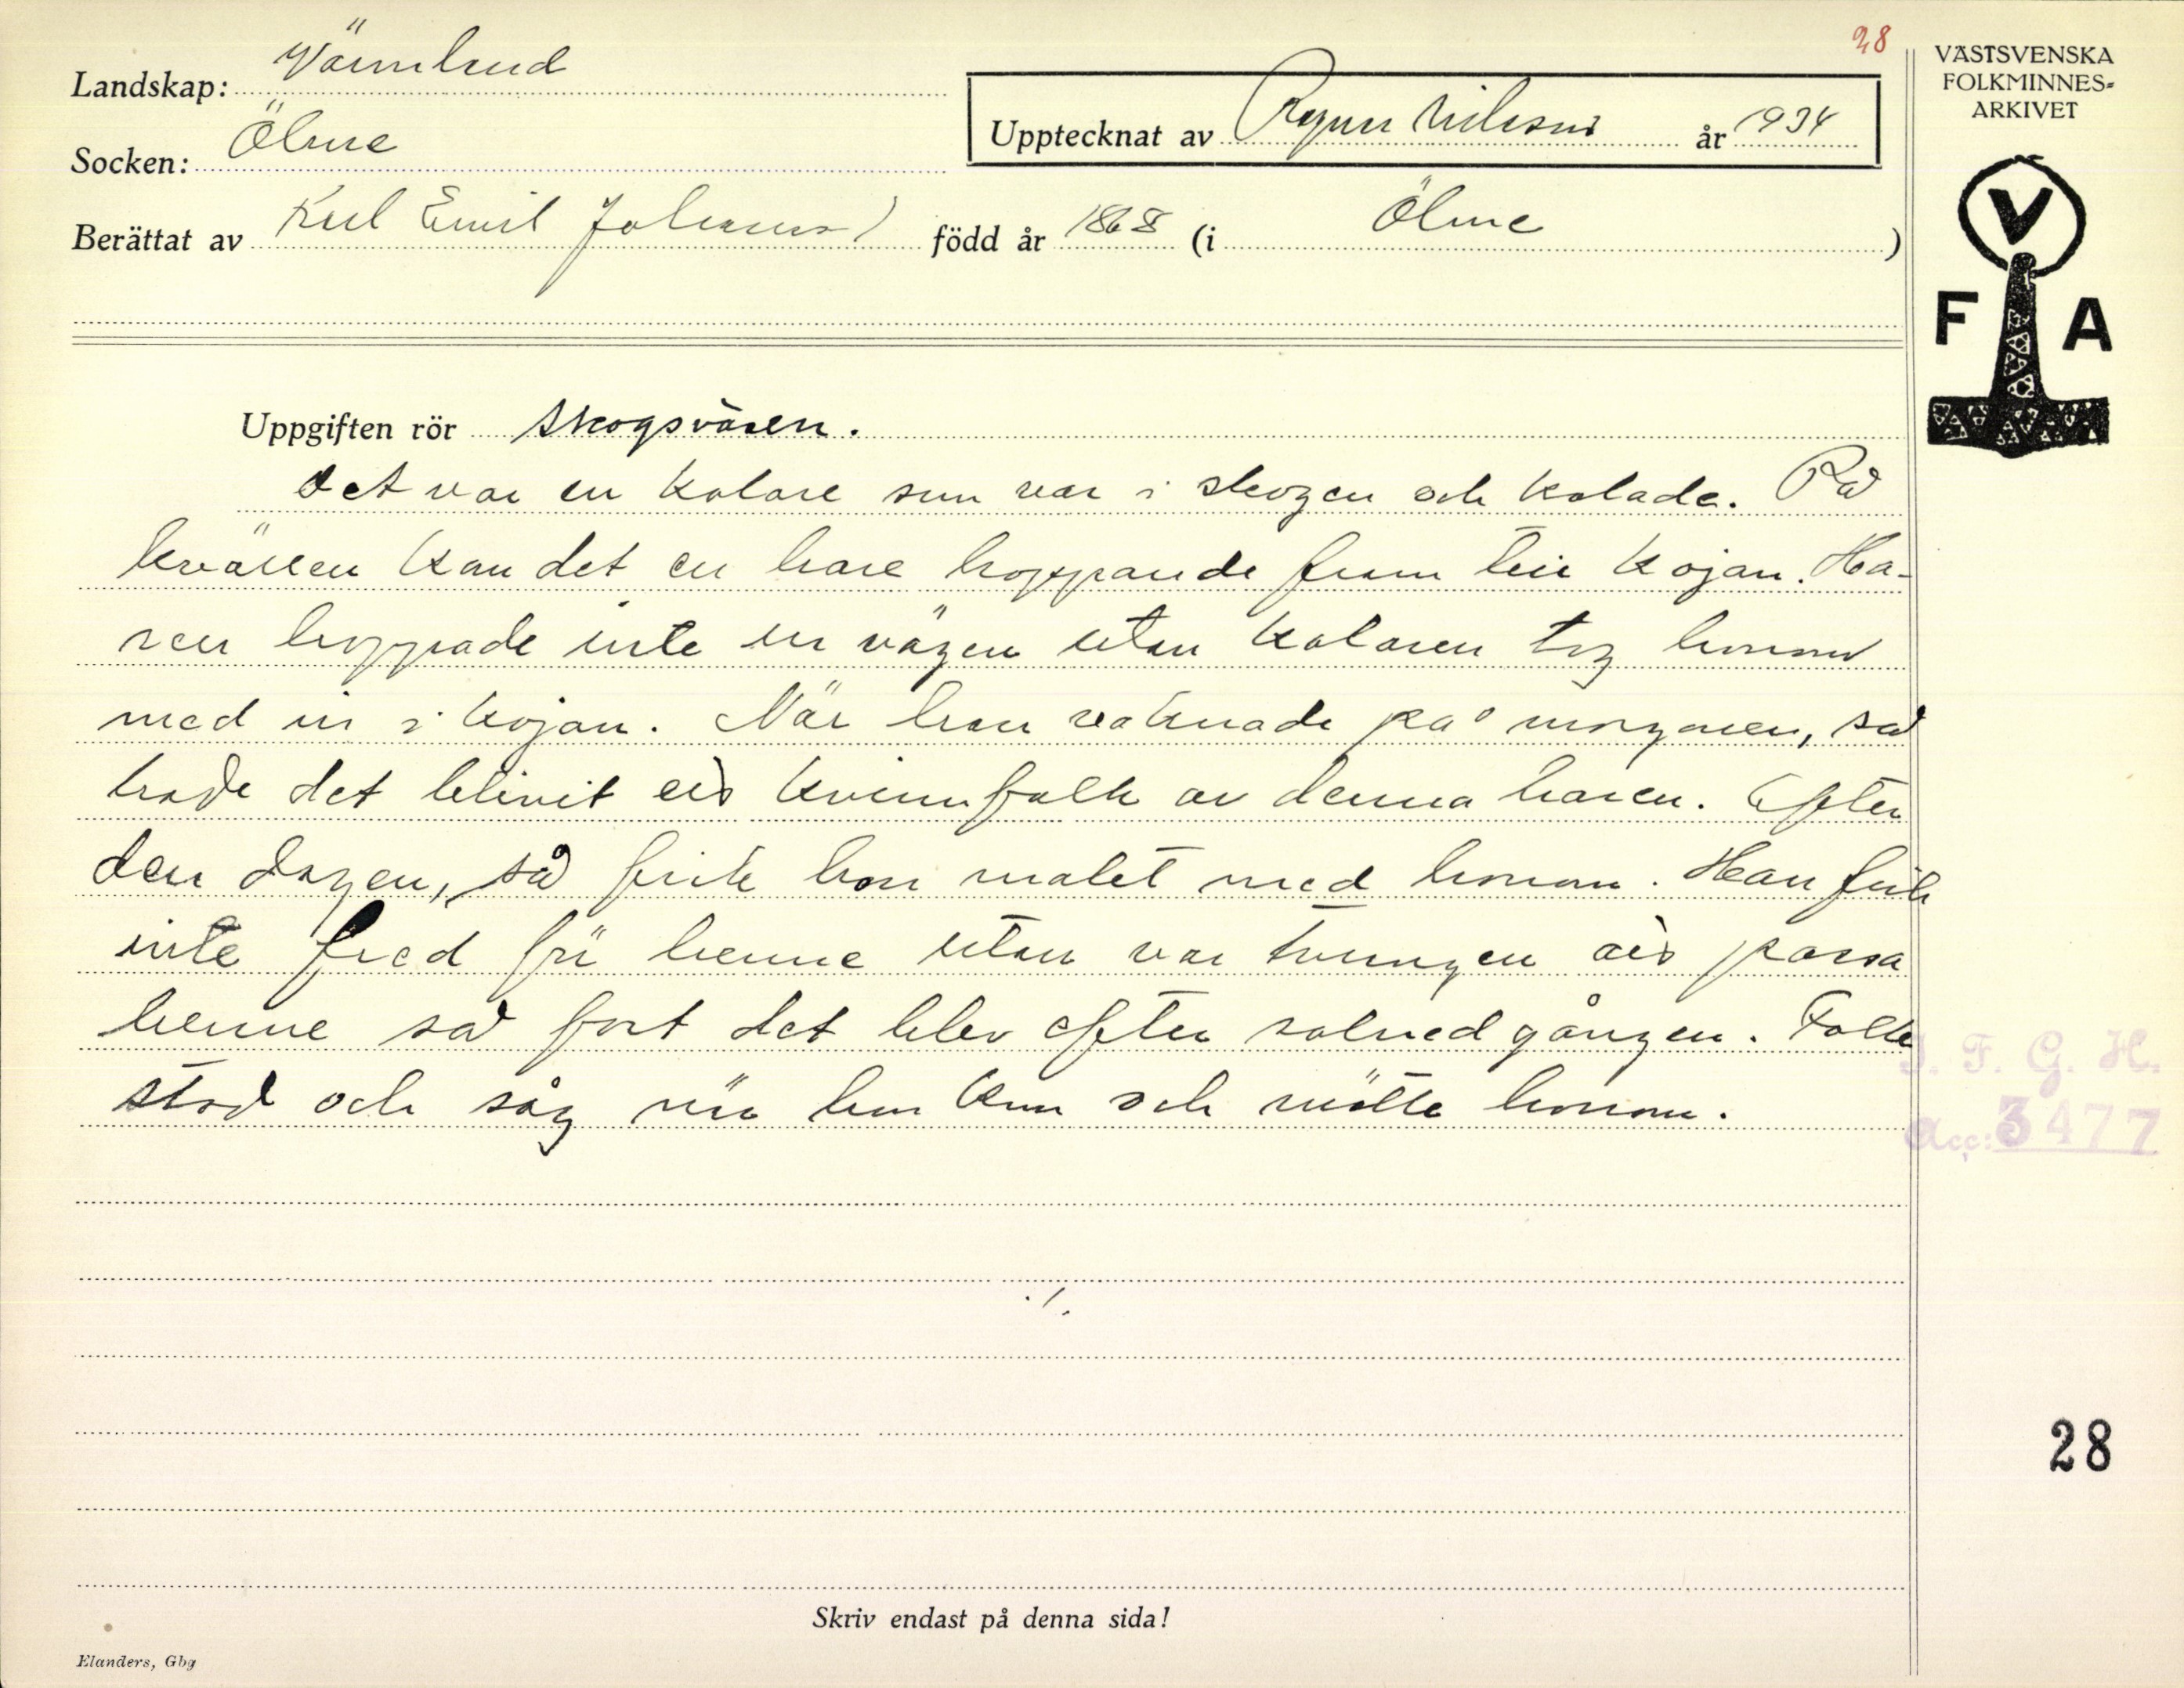 28
VÄSTSVENSKA
FOLKMINNES-
ARKIVET
Landskap: Värmland
Upptecknat av Ragnar Nilsson år 1934
Socken: Ölme
Berättat av Karl Emil Johansson
född år 1868 (i Ölme)
V
F A
Uppgiften rör skogsväsen.
Det var en kolare som var i skogen och kolade. På
kvällen kom det en hare hoppande fram till kojan. Ha-
ren hoppade inte ur vägen utan kolaren tog honom
med in i kojan. När han vaknade på morgonen, så
hade det blivit ett kvinnfolk av denna haren. Efter
den dagen, så fick hon makt med honom. Han fick
inte fred för henne utan var tvungen att passa
henne så fort det blev efter solnedgången. Folk
stod och såg när hon kom och mötte honom.
I. F. G. H.
Acc: 3477
./.
28
Skriv endast på denna sida!
Elanders, Gbg